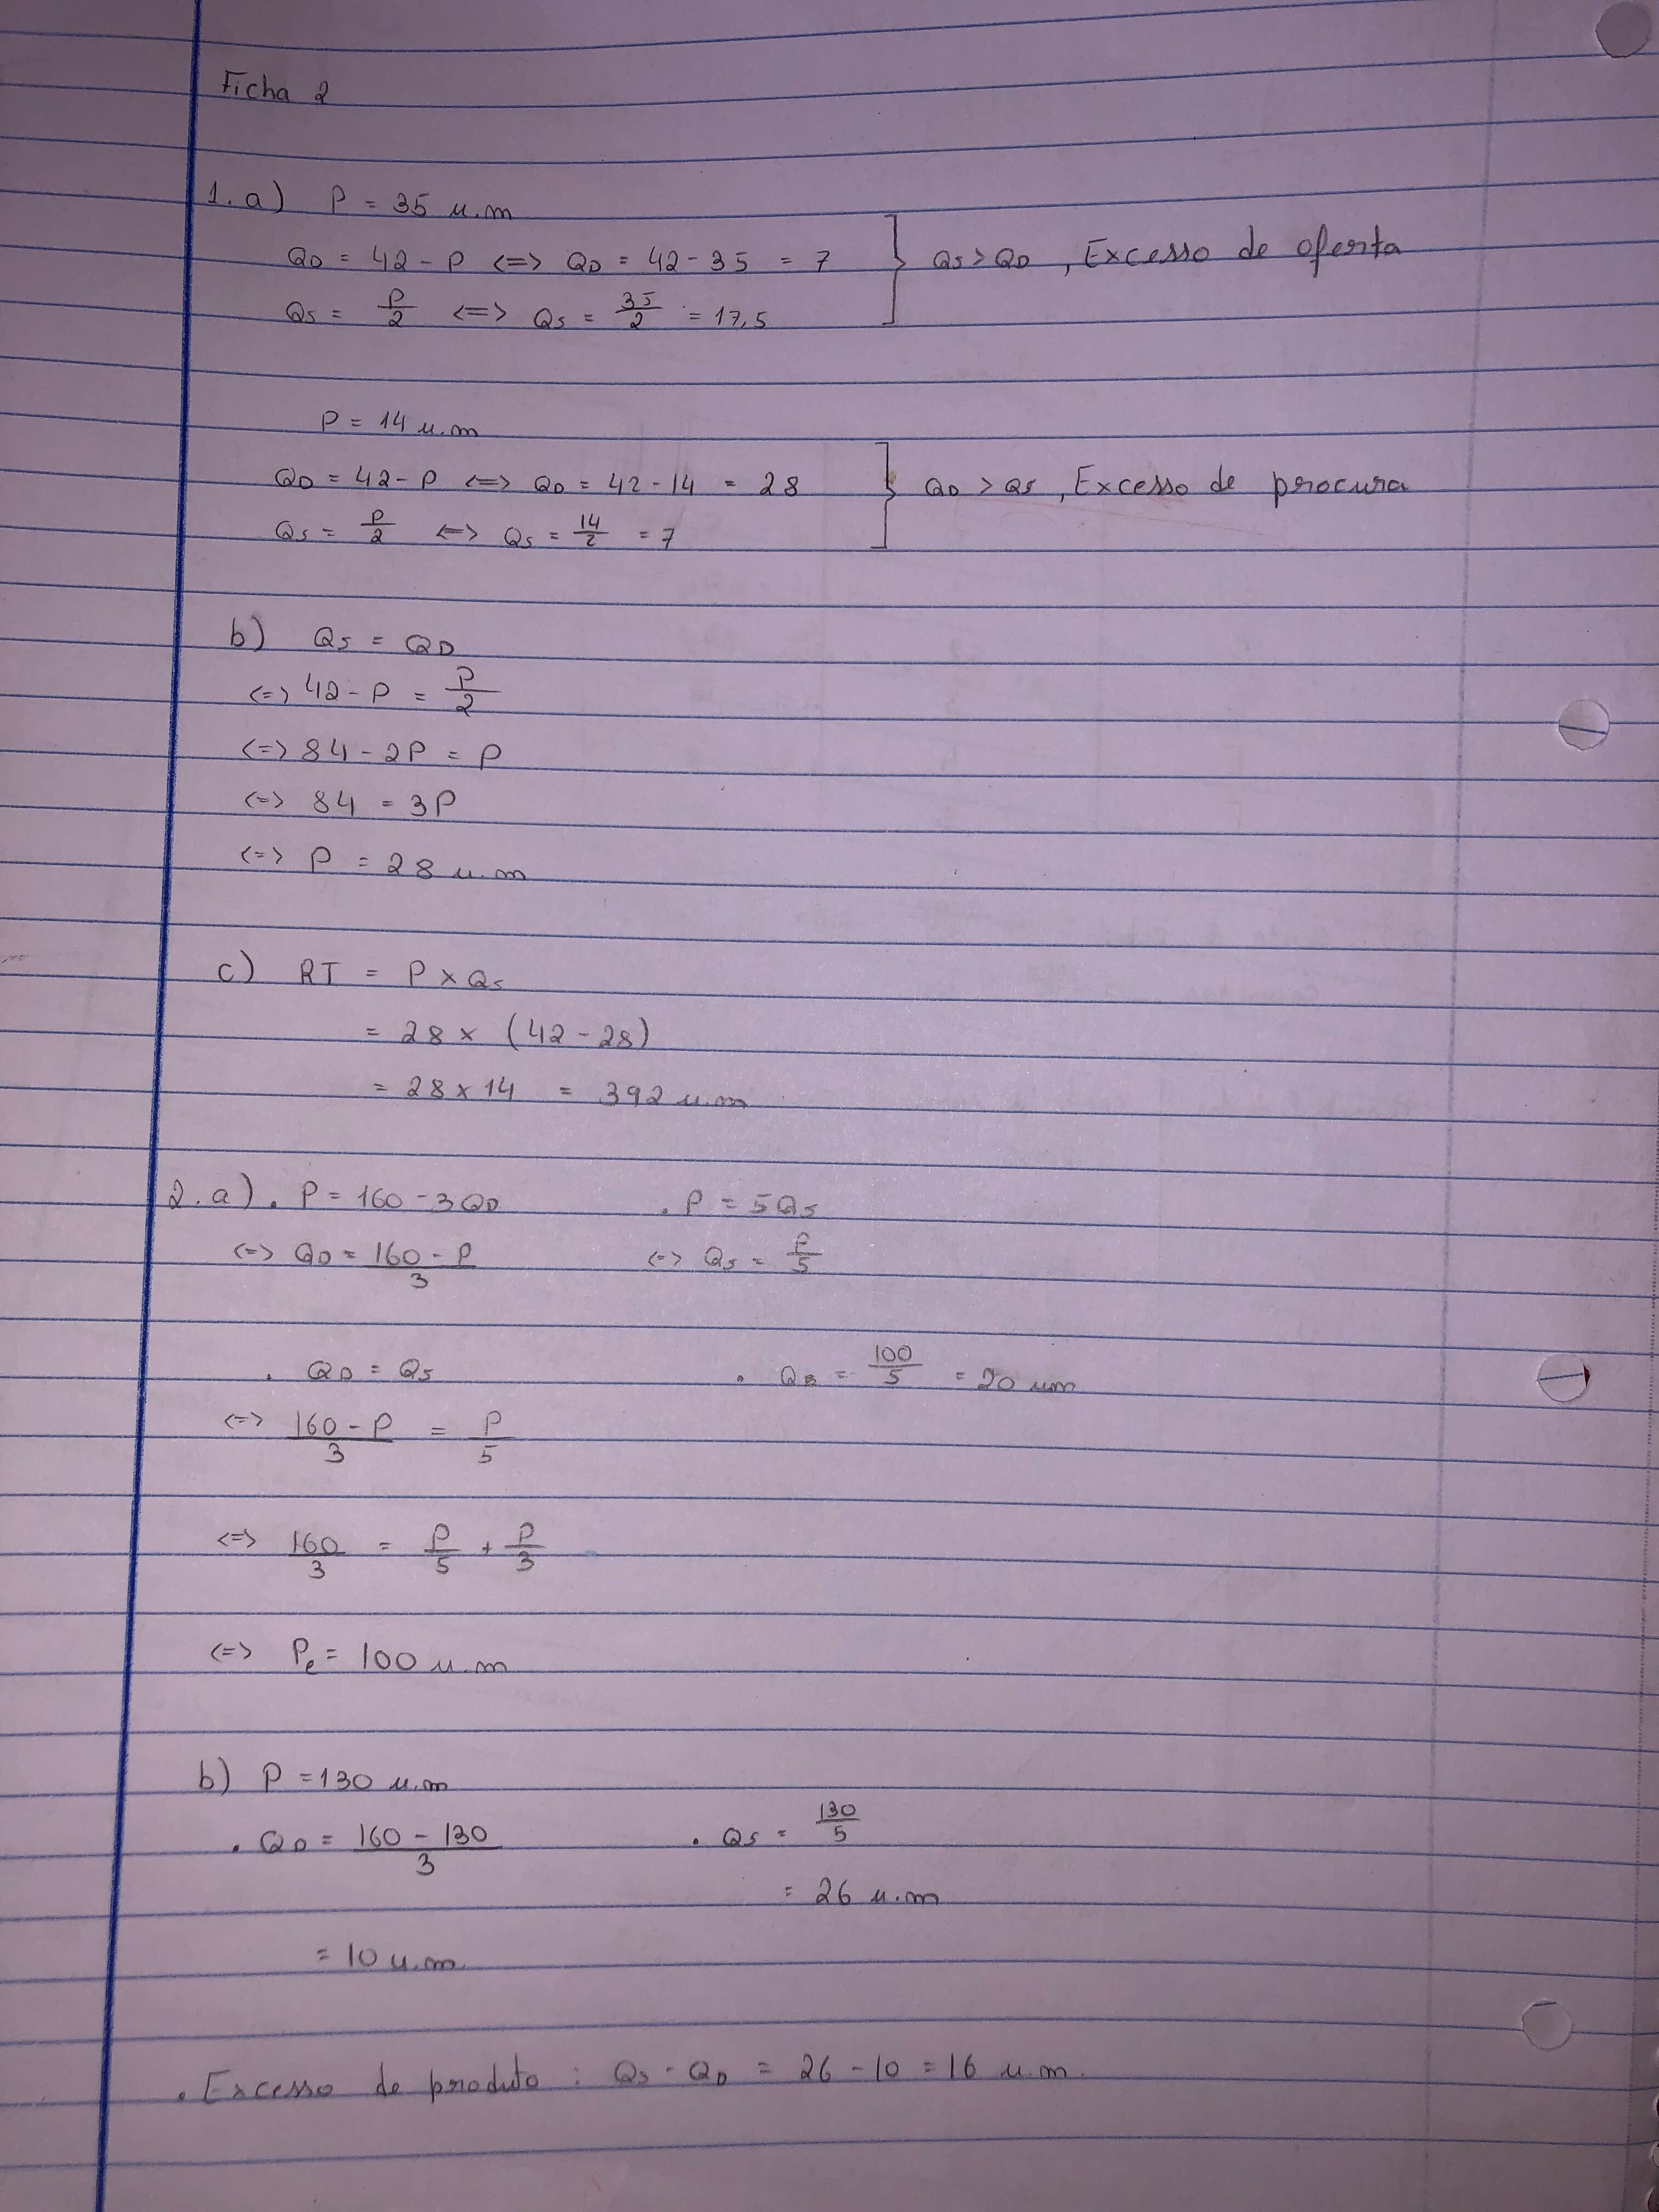 Ficha 2
1. a) P = 35 u.m
QD = 42 - P <=> QD = 42 - 35 = 7
QS = P/2 <=> QS = 35/2 = 17,5
} QS > QD , Excesso de oferta
P = 14 u.m
QD = 42 - P <=> QD = 42 - 14 = 28
QS = P/2 <=> QS = 14/2 = 7
} QD > QS , Excesso de procura
b) QS = QD
<=> 42 - P = P/2
<=> 84 - 2P = P
<=> 84 = 3P
<=> P = 28 u.m
c) RT = P x QS
= 28 x (42 - 28)
= 28 x 14 = 392 u.m
2. a) . P = 160 - 3QD
<=> QD = (160 - P)/3
. P = 5QS
<=> QS = P/5
. QD = QS
<=> (160 - P)/3 = P/5
<=> 160/3 = P/5 + P/3
<=> Pe = 100 u.m
. = 100/5 = 20 um
b) P = 130 u.m
. QD = (160 - 130)/3
= 10 u.m.
. QS = 130/5
= 26 u.m
. Excesso de produto : QS - QD = 26 - 10 = 16 u.m.